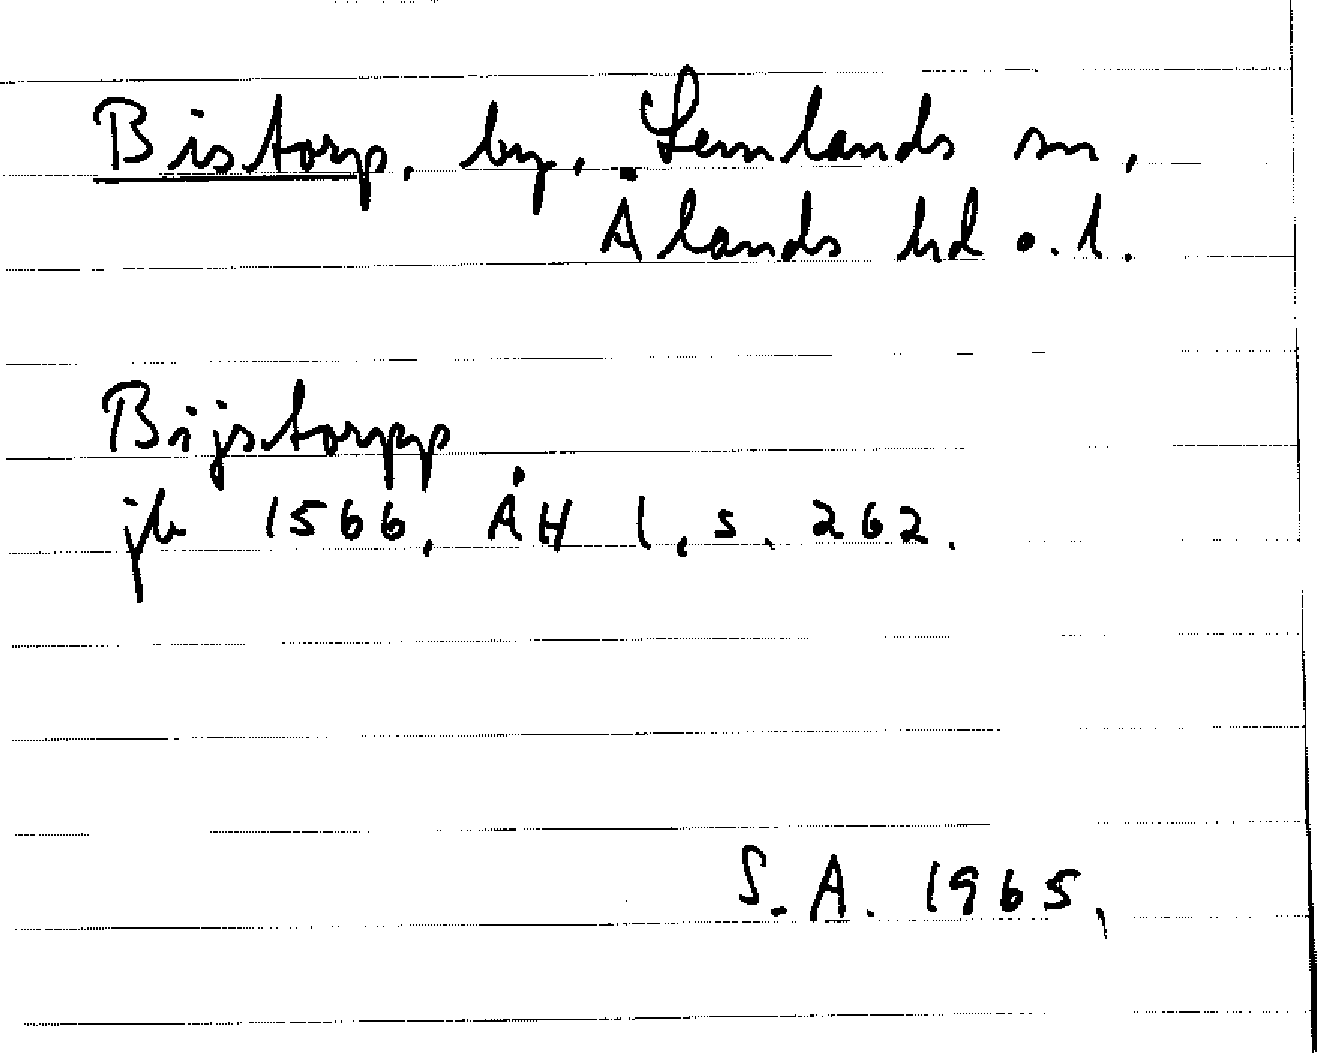 Bistorp, by, Lemlands sn,
Ålands hd o. l.
Bijstorpp
jb 1566, ÅH 1, s. 262.
S.A. 1965,